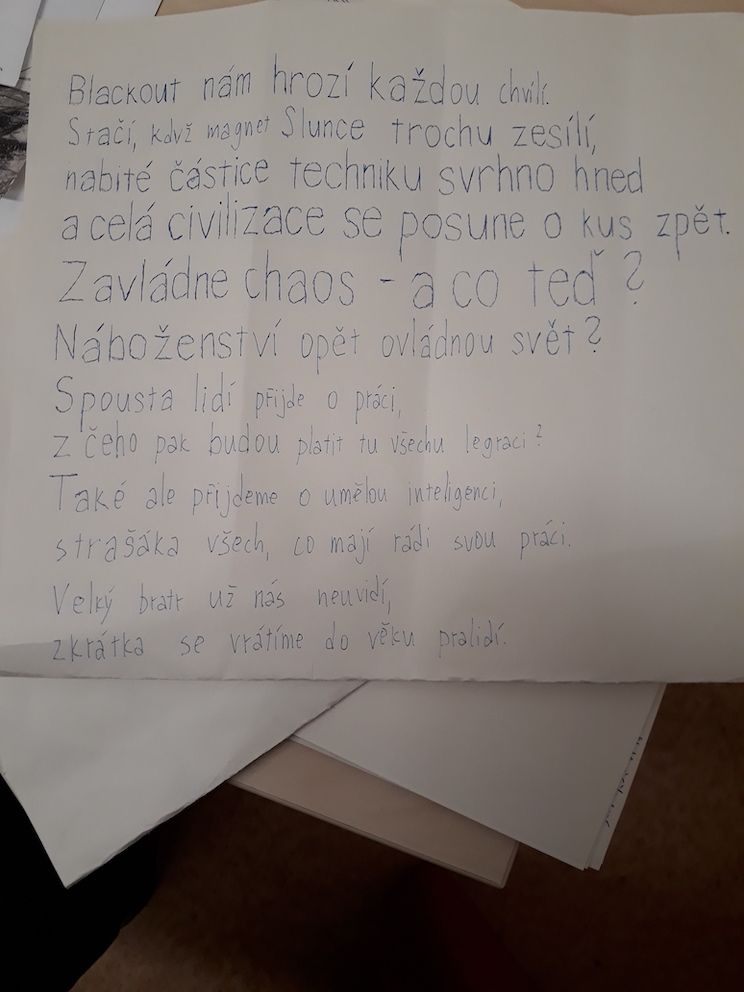 Blackout nám hrozí každou chvíli.
Stačí, když magnet Slunce trochu zesílí,
nabité částice techniku svrhno hned
a celá civilizace se posune o kus zpět.
Zavládne chaos - a co teď?
Náboženství opět ovládnou svět?
Spousta lidí přijde o práci,
z čeho pak budou platit tu všechu legraci?
Také ale přijdeme o umělou inteligenci,
strašáka všech, co mají rádi svou práci.
Velký bratr už nás neuvidí,
zkrátka se vrátíme do věku pralidí.